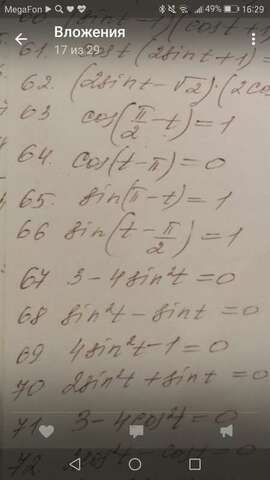 MegaFon 49% 16:29
Вложения
17 из 29
61. cost(2sint+1)=
62. (2sint-√2)·(2co
63 cos(π/2-t)=1
64. cos(t-π)=0
65. sin(π-t)=1
66 sin(t-π/2)=1
67 3-4sin²t=0
68 sin²t-sint=0
69 4sin²t-1=0
70 2sin²t+sint=0
71 3-4cos²t=0
72 cos²t-cost=0